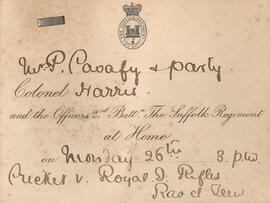 Mr P. Cavafy & party.
Colonel Harris
and the Officers 2nd Battn The Suffolk Regiment
at Home
on Monday 26th 3. p.m.
Cricket v. Royal I. Rifles.
Ras el Teen